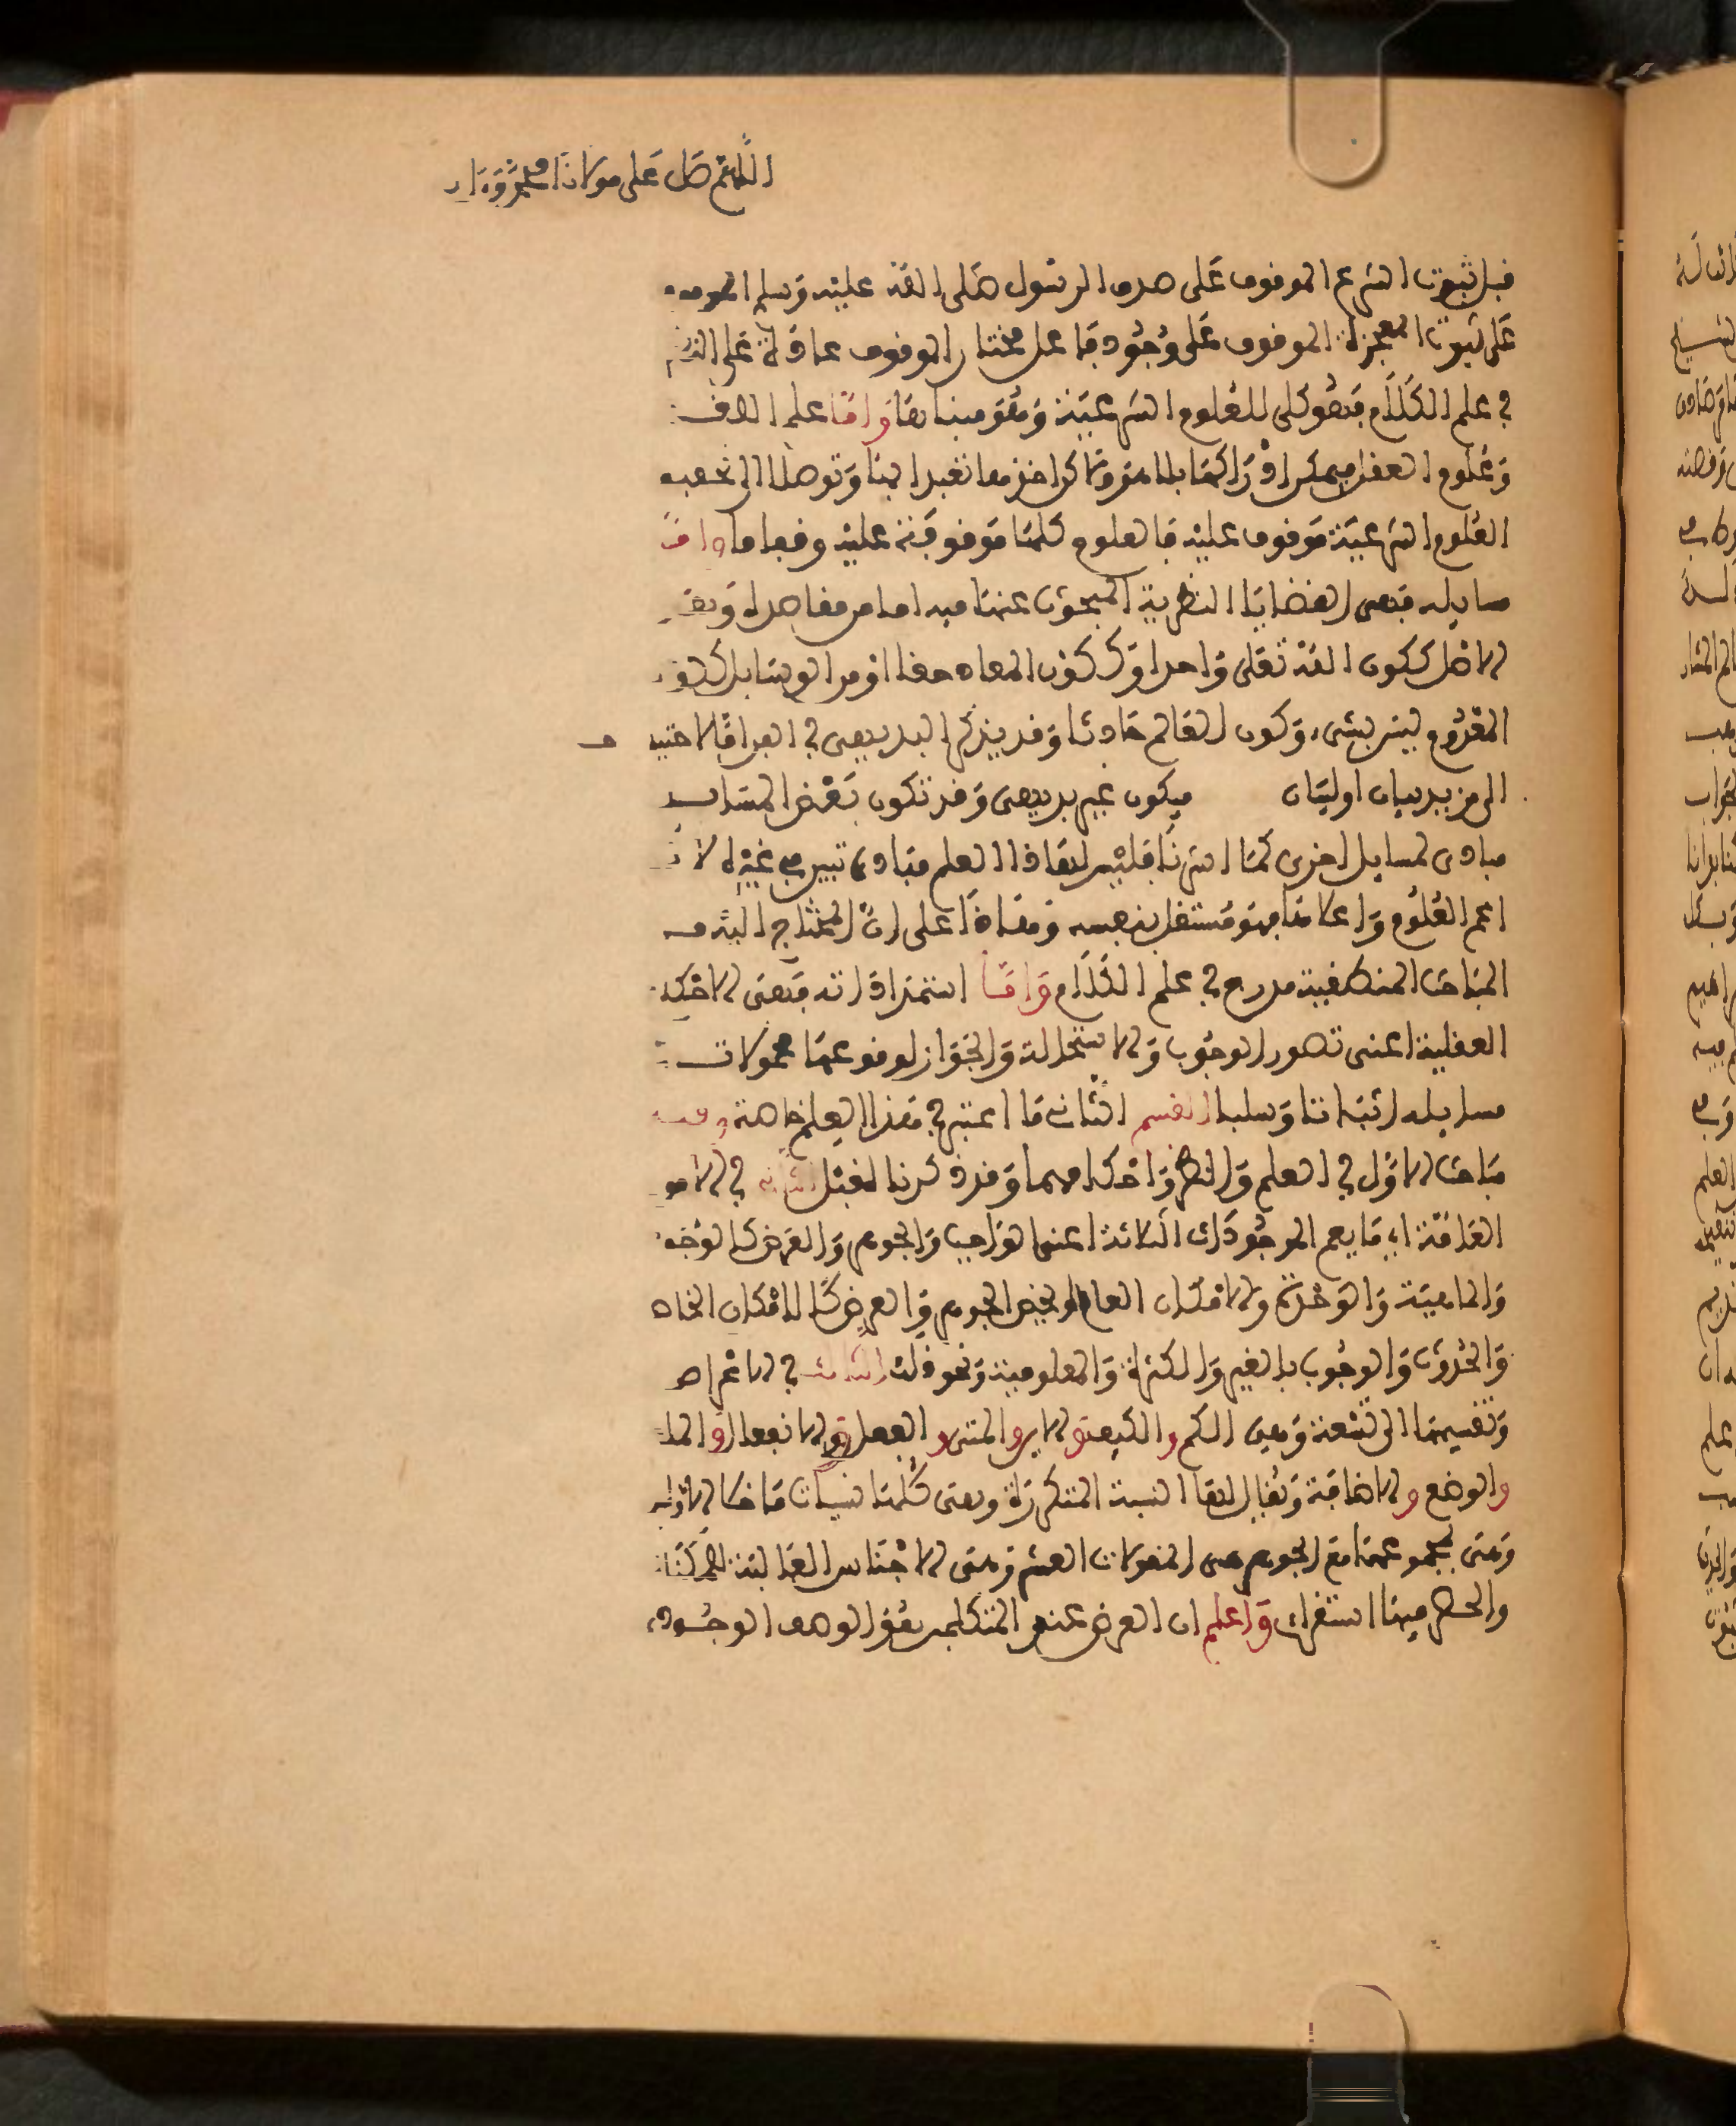 اللهم صل على مولانا محمد وءاله
قبل ثبوت الشرع الموقوف على صدق الرسول صلى الله عليه وسلم الموقوف
على ثبوت المعجزة الموقوف على وجود فاعل مختار الموقوف عادة على النظر
في علم الكلام فهو كلي للعلوم الشرعية ومقوم بنائها واما علم
وعلوم العقل فيمكن ادراكها بدونه لاكن اخذها تعبدا لها وتوصلا الى
العلوم الشرعية موقوف عليه فالعلوم كلها موقوفة عليه وقعا ما واما
مسايله فهي القضايا النظرية المبحوث عنها فيه اما من مقاصده وهي
الاصل ككون الله تعلى واحدا وككون المعاد حقا او من الوسايل ككون
المعدوم ليس بشيء وكون العالم حادثا وقد يذكر البديهي في العبر اما لاحتياجه
الى مزيد بيان او لبيان فيكون غير بديهي وقد تكون بعض المسايل
مبادي لمسايل اخرى كما اشرنا فليس لهاذا العلم مبادي تبين في غيره لانه
اعم العلوم واعلاها فهو مستقل بنفسه وهاذا على ان المحتاج اليه من
المباحث المنطقية مدرج في علم الكلام واما استمداداته فهي الاحكام
العقلية اعني تصور الوجوب والاستحالة والجواز لوقوعها محمولات
مسايله اثباتا وسلبا القسم الثاني ما اعتبر في هذا العلم خاصة وفيه
مباحث الاول في العلم والنظر واحكامهما وقد ذكرنا قبل الثاني في الامور
العامة اي ما يعم الموجودات الثلاثة اعني الواجب والجوهر والعرض كالوجود
والماهية والوحدة والامكان العام او يخص الجوهر والعرض كالامكان الخاص
والحدوث والوجوب بالغير والكثرة والمعلومية ونحو ذلك الثالث في الاعراض
وتقسيمها الى تسعة وهي الكم والكيف والاين والمتى والفعل والانفعال والملك
والوضع والاضافة ويقال لها النسبة المتكررة وهي كلها نسبيات ما خلا الاولين
وهي بمجموعها مع الجوهر هي المقولات العشر وهي الاجناس العالية للممكنات
والحصر فيها استقراي واعلم ان العرض عند المتكلمين هو الوصف الوجودي